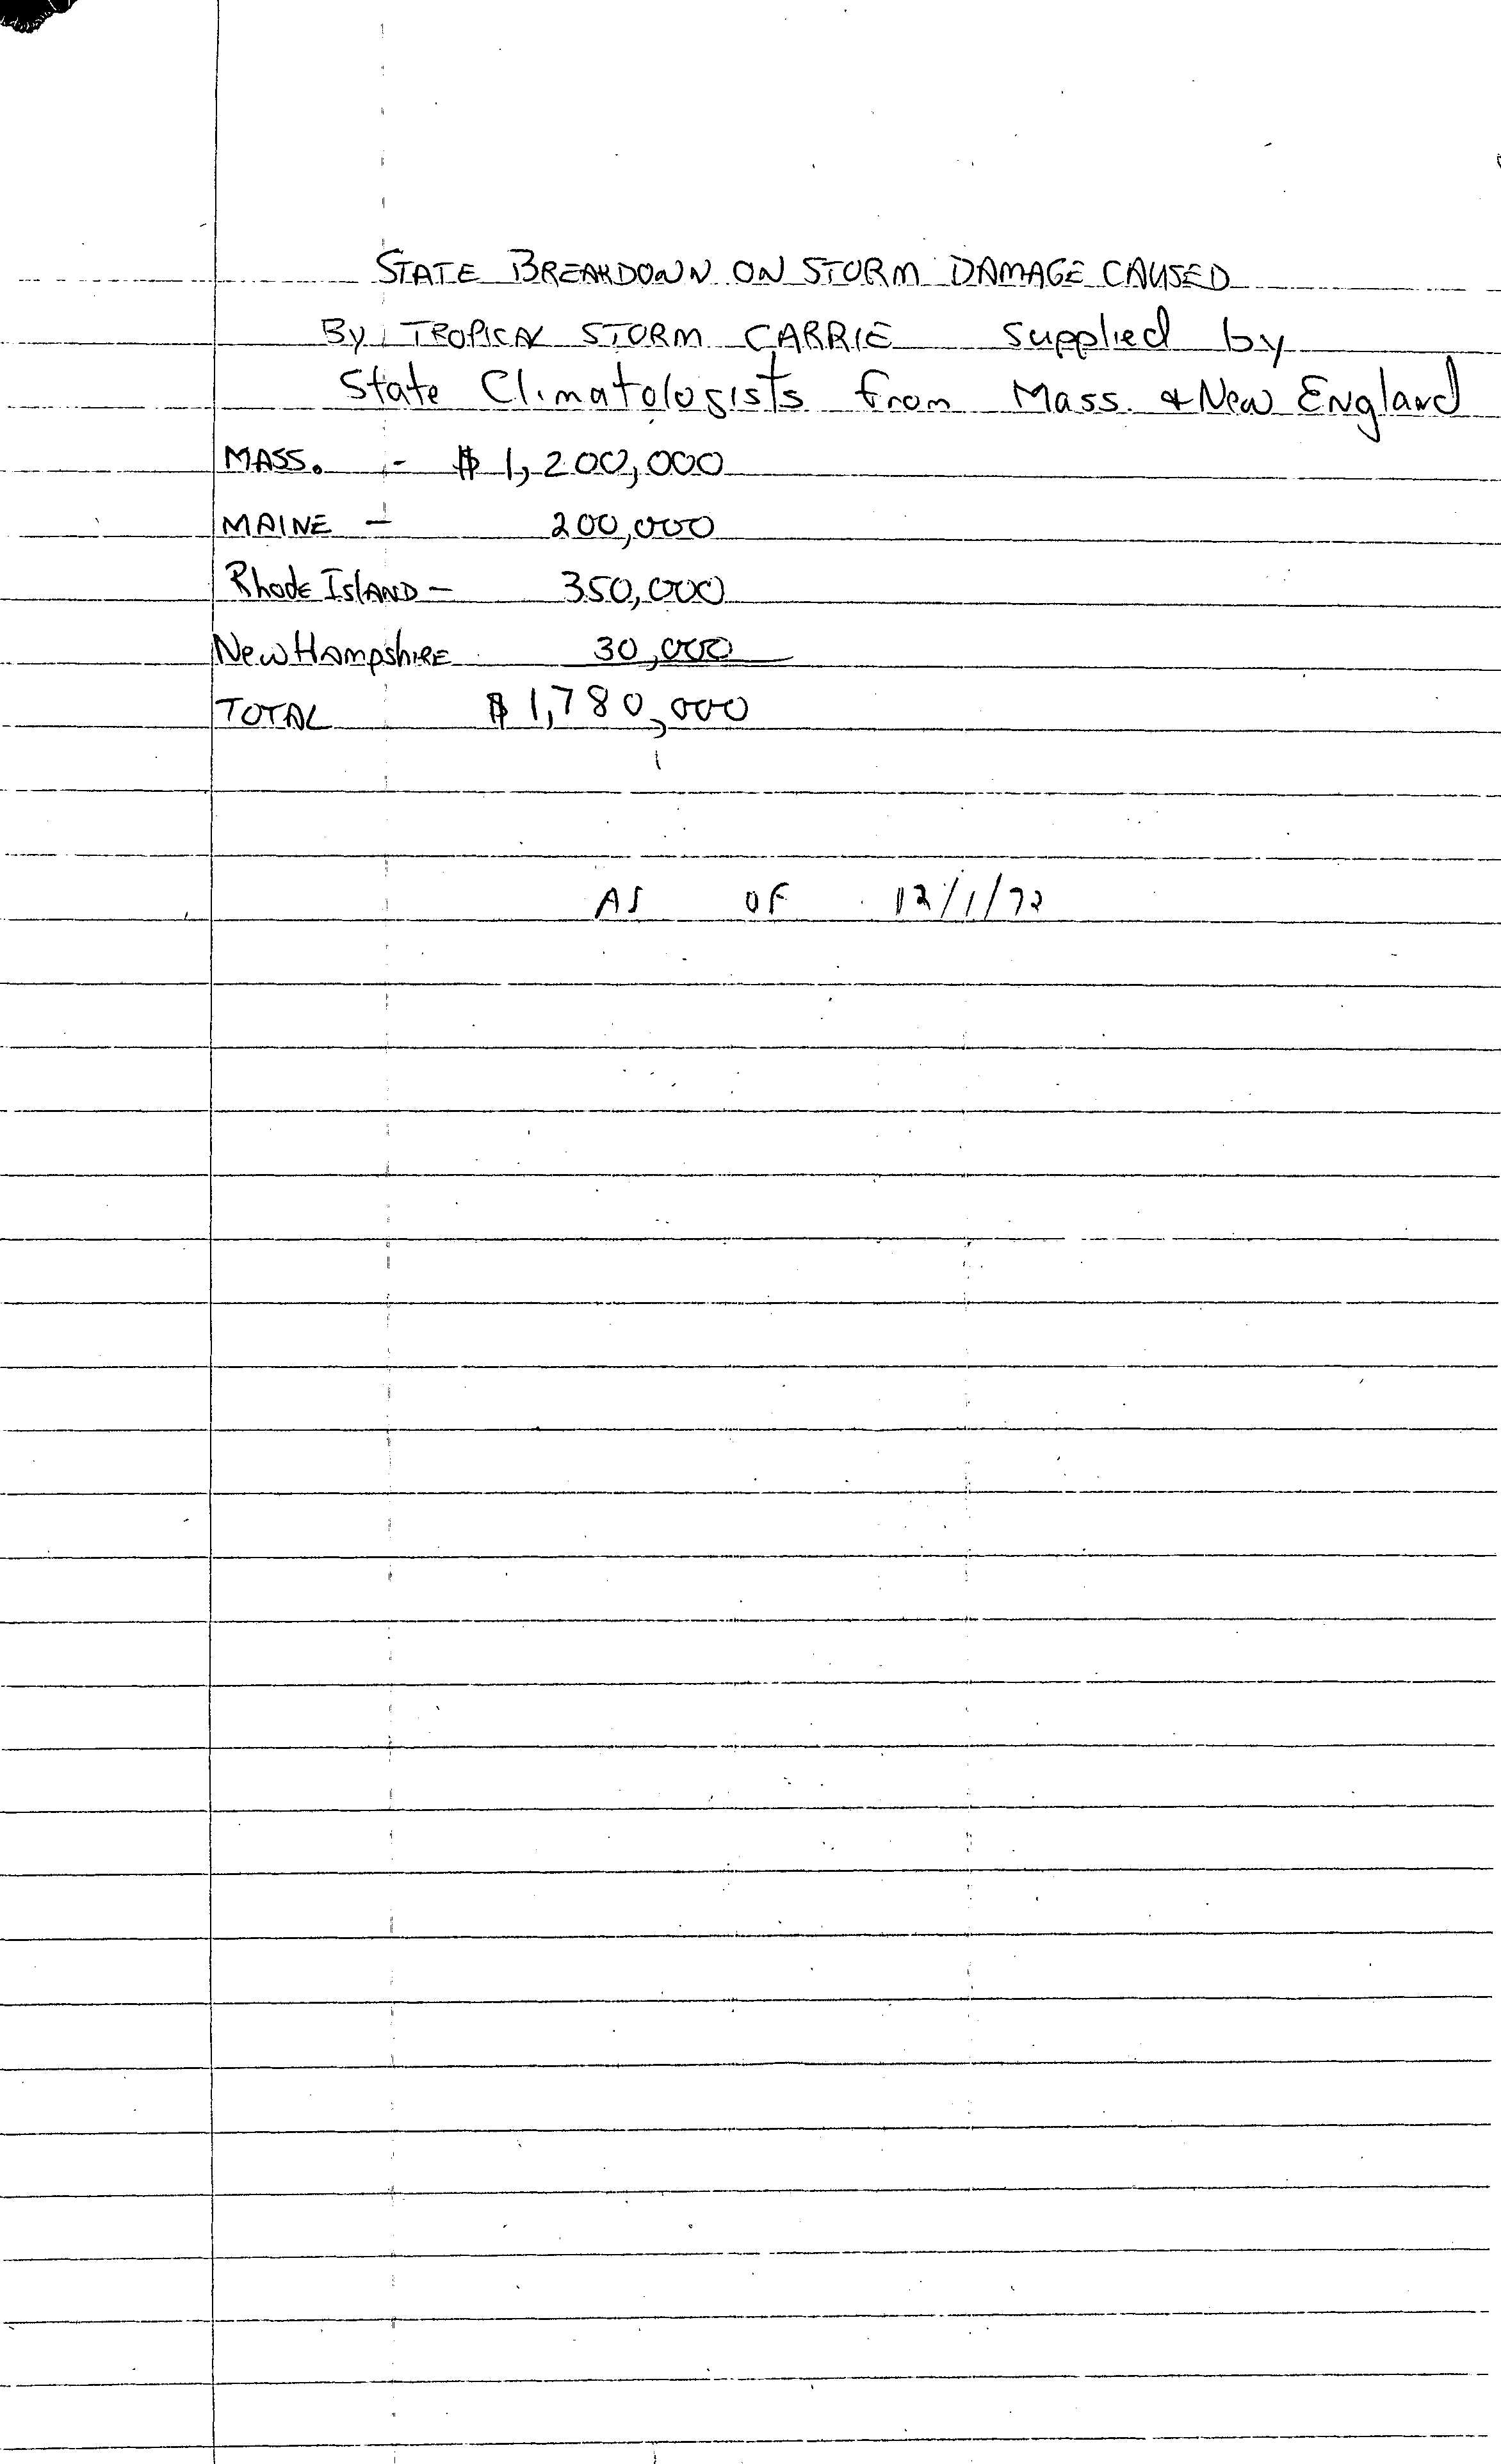 STATE BREAKDOWN ON STORM DAMAGE CAUSED
By TROPICAL STORM CARRIE supplied by
State Climatologists from Mass. & New England
MASS. - $1,200,000
MAINE - 200,000
Rhode Island - 350,000
New Hampshire 30,000
TOTAL $1,780,000
AS OF 12/1/72